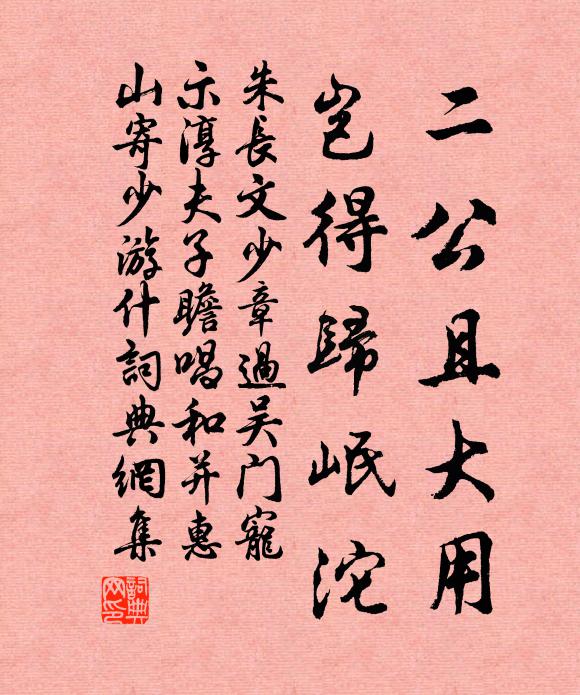 二公且大用
豈得歸岷沱
朱長文少章過吴门寵
示淳夫子瞻唱和并惠
山寄少游什詞典網集
詞典网印